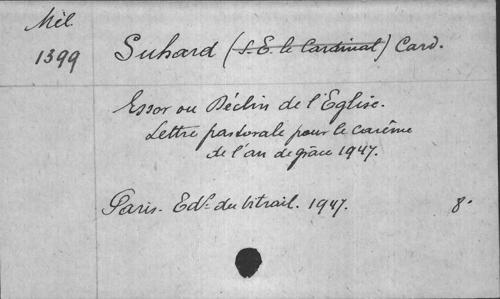 Mél.
1399
Suhard (S. E. le Cardinal) Card.
Essor ou Déclin de l'Eglise.
Lettre pastorale pour le carême
de l'an de grâce 1947.
Paris. Ed. du Vitrail. 1947. 8°